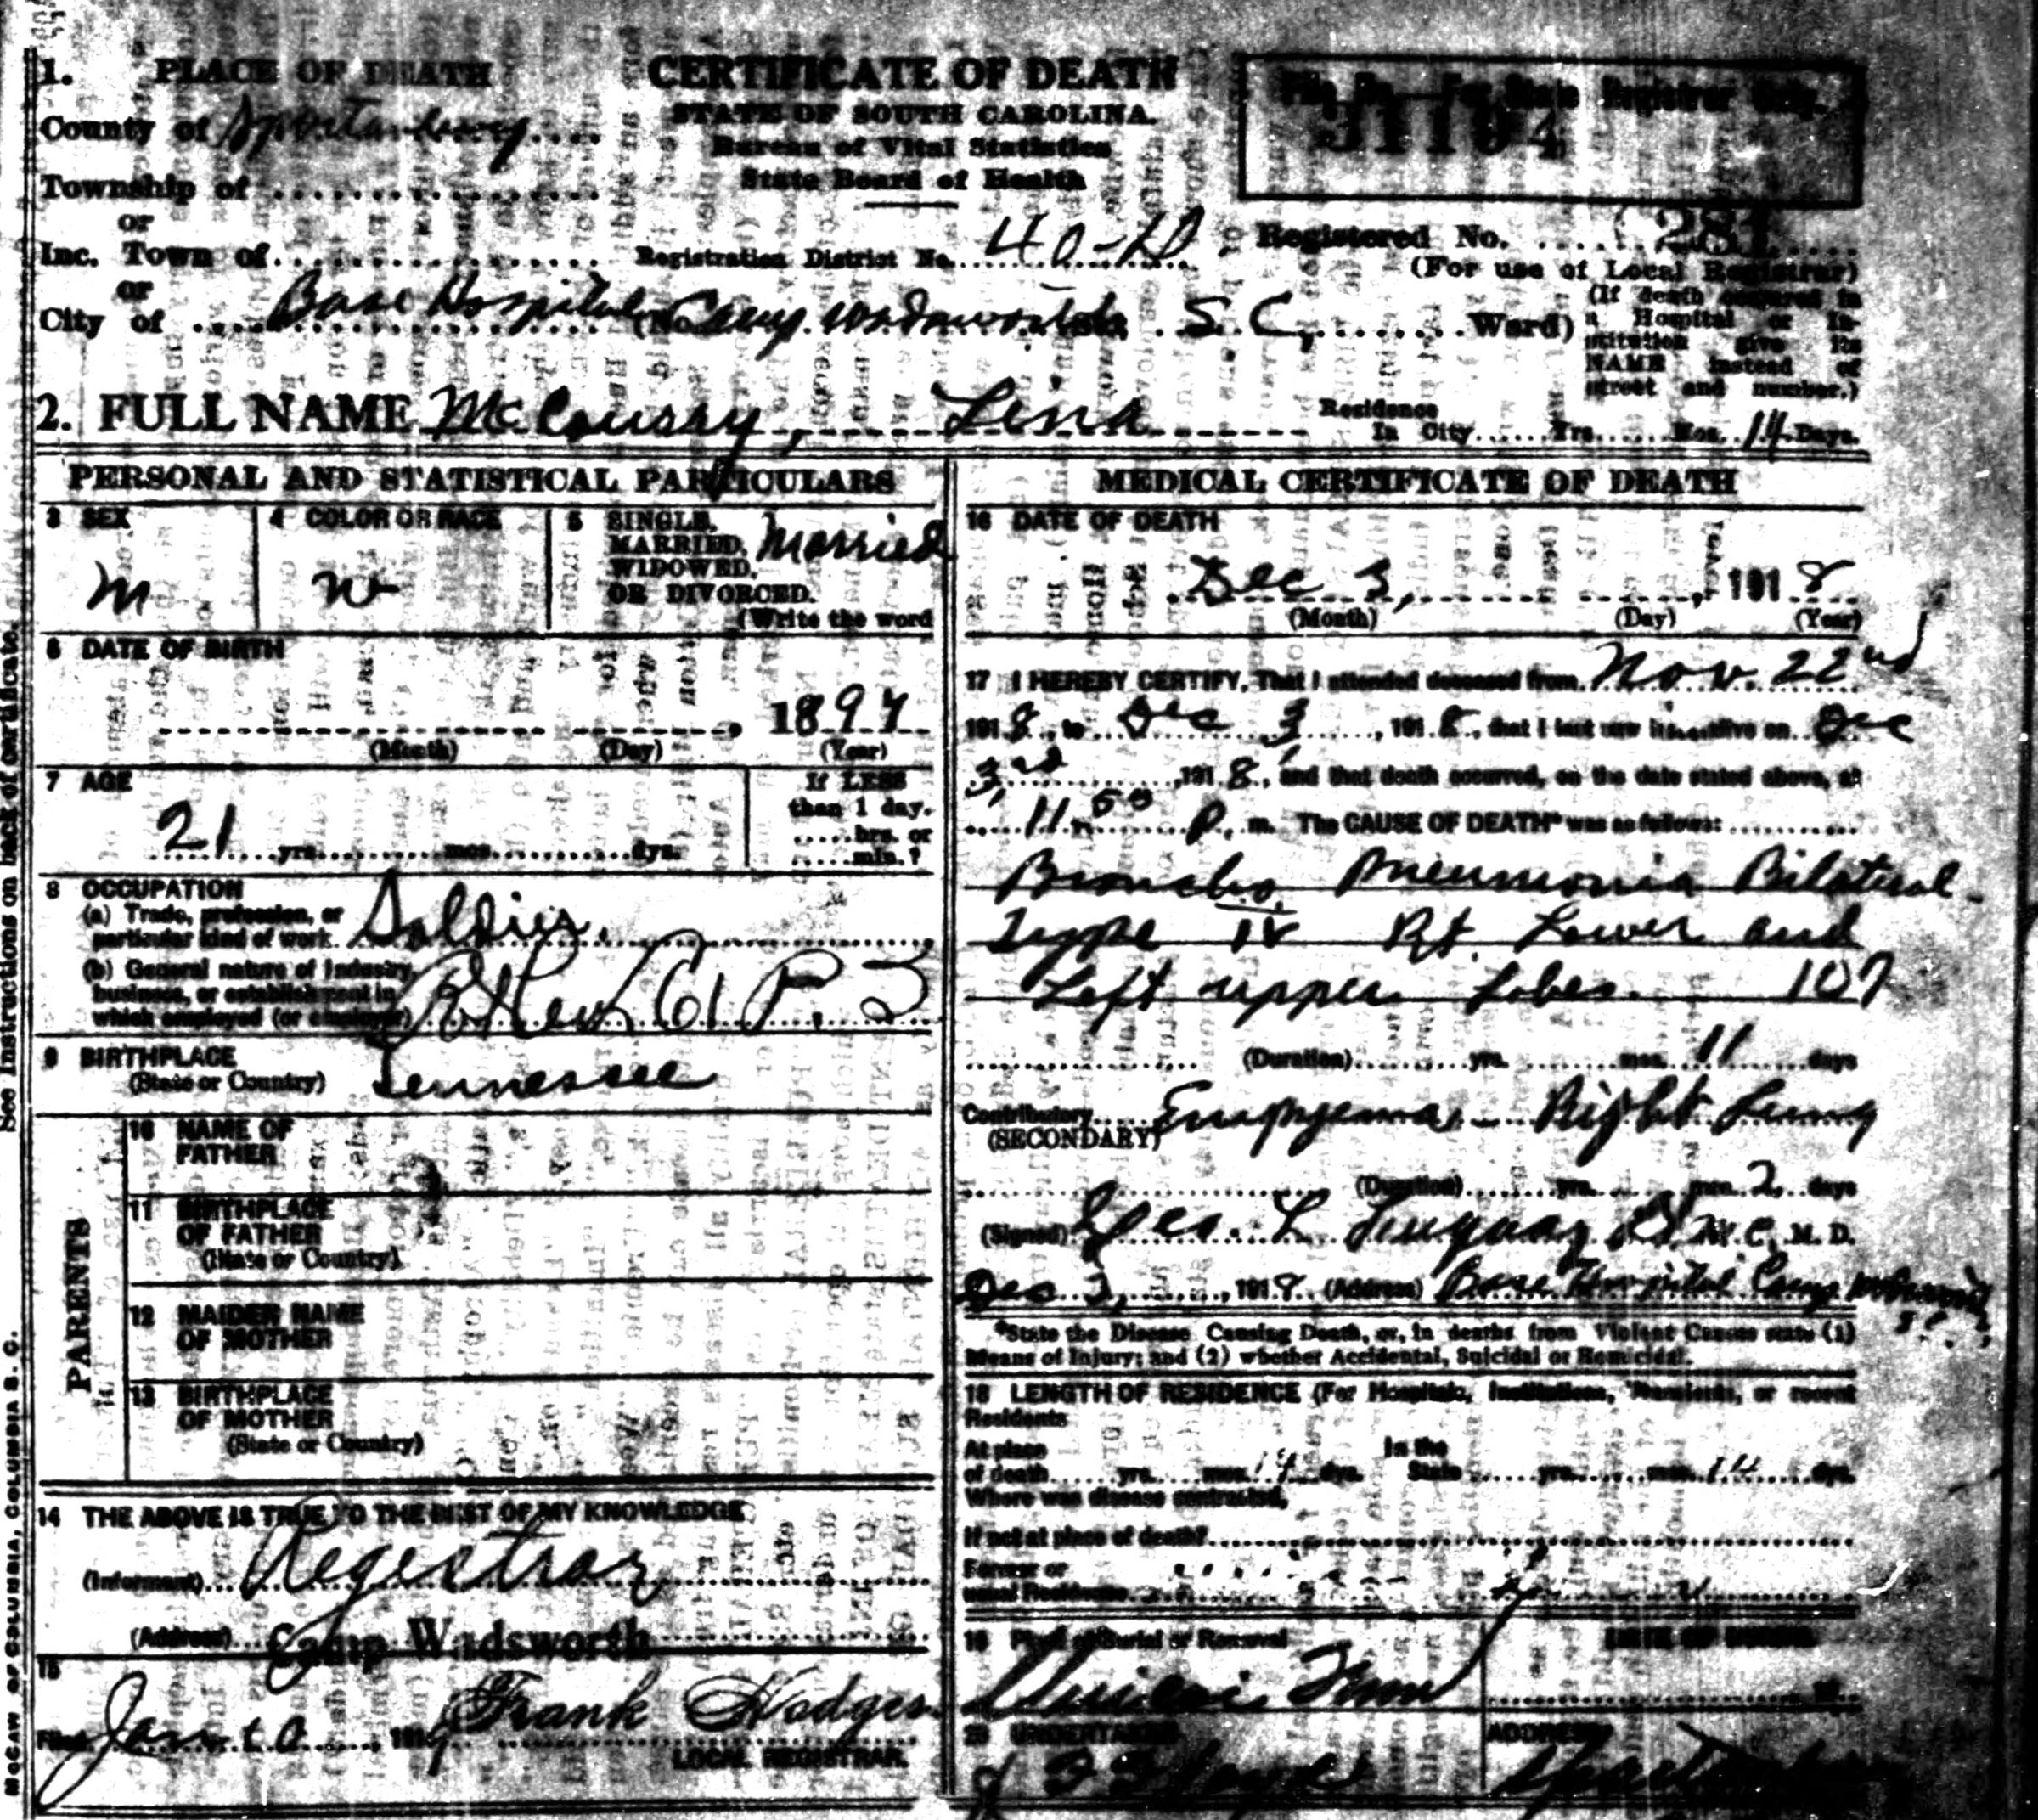 1. PLACE OF DEATH
County of Spartanburg
Township of
or
Inc. Town of
or
City of Base Hospital (No. Camp Wadsworth St; S. C. Ward)
CERTIFICATE OF DEATH
STATE OF SOUTH CAROLINA.
Bureau of Vital Statistics
State Board of Health
Registration District No. 40-D
File No.—For State Registrar Only.
Registered No. 281
(For use of Local Registrar)
(If death occurred in
a Hospital or In-
stitution give its
NAME instead of
street and number.)
2. FULL NAME McCourry, Lins
Residence
In City Yrs. Mos. 14 Days.
PERSONAL AND STATISTICAL PARTICULARS
3 SEX
M
4 COLOR OR RACE
W
5 SINGLE, Married
MARRIED,
WIDOWED,
OR DIVORCED.
(Write the word
6 DATE OF BIRTH
, 1897
(Month) (Day) (Year)
7 AGE
21 yrs. mos. dys.
If LESS
than 1 day.
hrs. or
min. ?
8 OCCUPATION
(a) Trade, profession, or
particular kind of work Soldier.
(b) General nature of Industry,
business, or establishment in
which employed (or employer) 61 P. 3
9 BIRTHPLACE
(State or Country) Tennessee
PARENTS
10 NAME OF
FATHER
11 BIRTHPLACE
OF FATHER
(State or Country)
12 MAIDEN NAME
OF MOTHER
13 BIRTHPLACE
OF MOTHER
(State or Country)
14 THE ABOVE IS TRUE TO THE BEST OF MY KNOWLEDGE
(Informant) Registrar
(Address) Camp Wadsworth
15
Filed Jan 191 Frank Hodges
LOCAL REGISTRAR.
MEDICAL CERTIFICATE OF DEATH
16 DATE OF DEATH
Dec 3, , 1918
(Month) (Day) (Year)
17 I HEREBY CERTIFY, That I attended deceased from Nov. 22nd
1918, to Dec 3, 1918, that I last saw him alive on Dec
3rd, 1918, and that death occurred, on the date stated above, at
11.50 P. m. The CAUSE OF DEATH* was as follows:
Broncho Pneumonia Bilateral
Type IV Rt Lower and
Left upper Lobes. 107
(Duration) yrs. mos. 11 days
Contributory Empyema - Right Lung
(SECONDARY)
(Duration) yrs. mos. 2 days
(Signed) Geo. L M. C., M. D.
Dec 3, 1918 (Address) Base Hospital Camp Wadsworth
S. C.
*State the Disease Causing Death, or, in deaths from Violent Causes state (1)
Means of Injury; and (2) whether Accidental, Suicidal or Homicidal.
18 LENGTH OF RESIDENCE (For Hospitals, Institutions, Transients, or recent
Residents
At place
of death yrs. mos. 14 dys.
In the
State yrs. mos. 14 dys.
Where was disease contracted,
if not at place of death?
Former or
usual Residence
19 Place of Burial or Removal
Tenn
DATE OF BURIAL
20 UNDERTAKER
J F Floyd
ADDRESS
Spartanburg
See instructions on back of certificate.
McCAW OF COLUMBIA, COLUMBIA S. C.